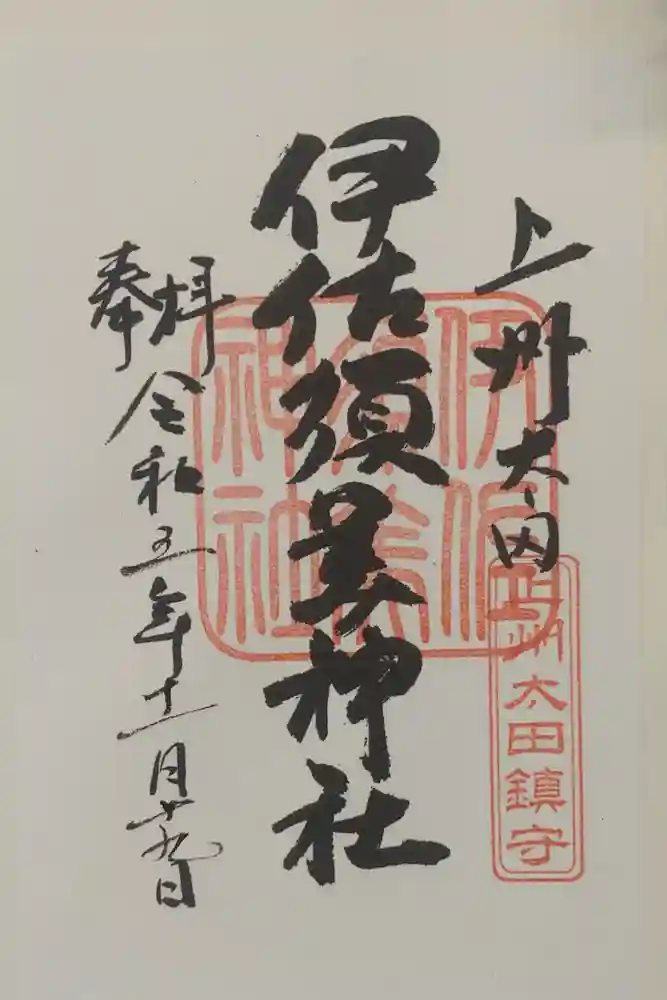 上州太田
上州太田鎮守
伊佐須美神社
伊佐須美神社
奉拝
令和五年十一月十九日